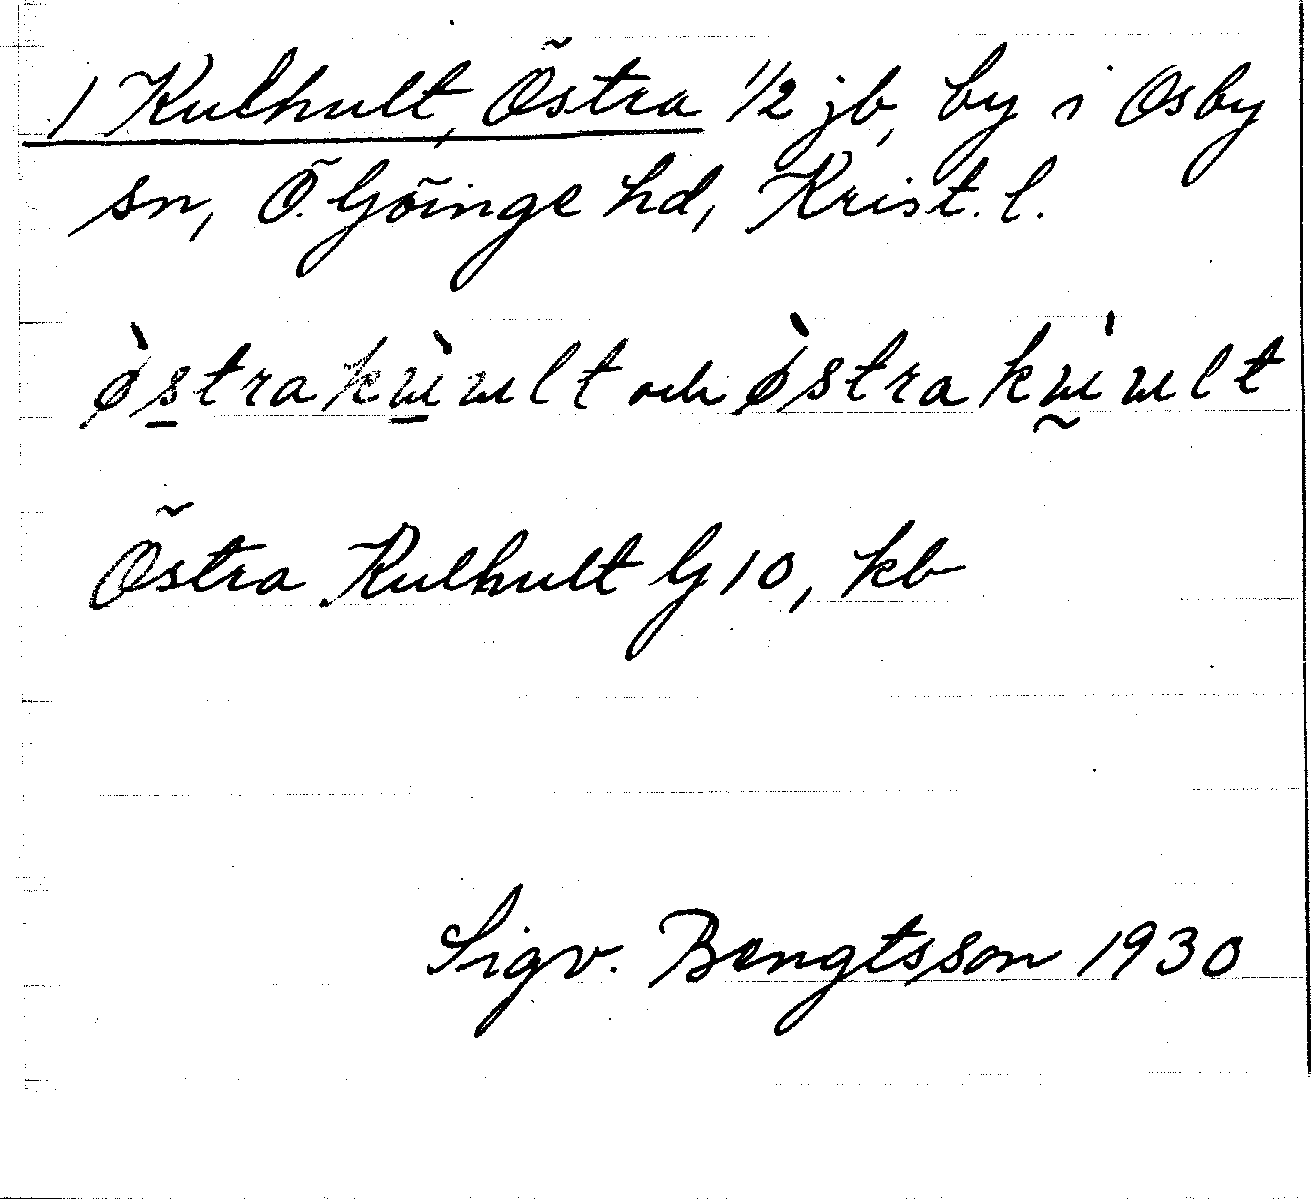 1 Kulhult, Östra 1/2 jb, by i Osby
sn, Ö. Göinge hd, Krist. l.
ø̀strakɯ̀ɯlt och ø̀strakɯ̀ɯlt
Östra Kulhult G 10, kb
Sigv. Bengtsson 1930